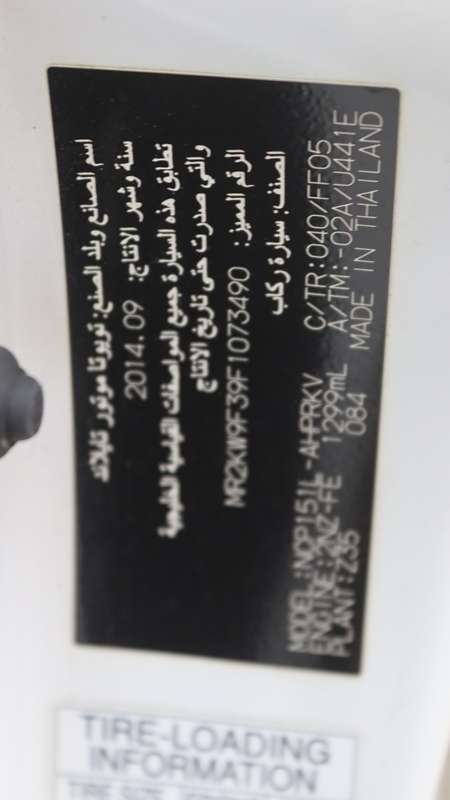 اسم الصانع وبلد الصنع: تويوتا موتور تايلاند
سنة وشهر الانتاج: 2014.09
تطابق هذه السيارة جميع المواصفات القياسية الخليجية
والتي صدرت حتى تاريخ الانتاج
الرقم المميز: MR2KW9F39F1073490
الصنف: سيارة ركاب
MODEL:NCP151L-AHPRKV C/TR:040/FF05
ENGINE:2NZ-FE 1299mL A/TM:-02A/U441E
PLANT:Z35 084 MADE IN THAILAND
TIRE-LOADING
INFORMATION
TIRE SIZE